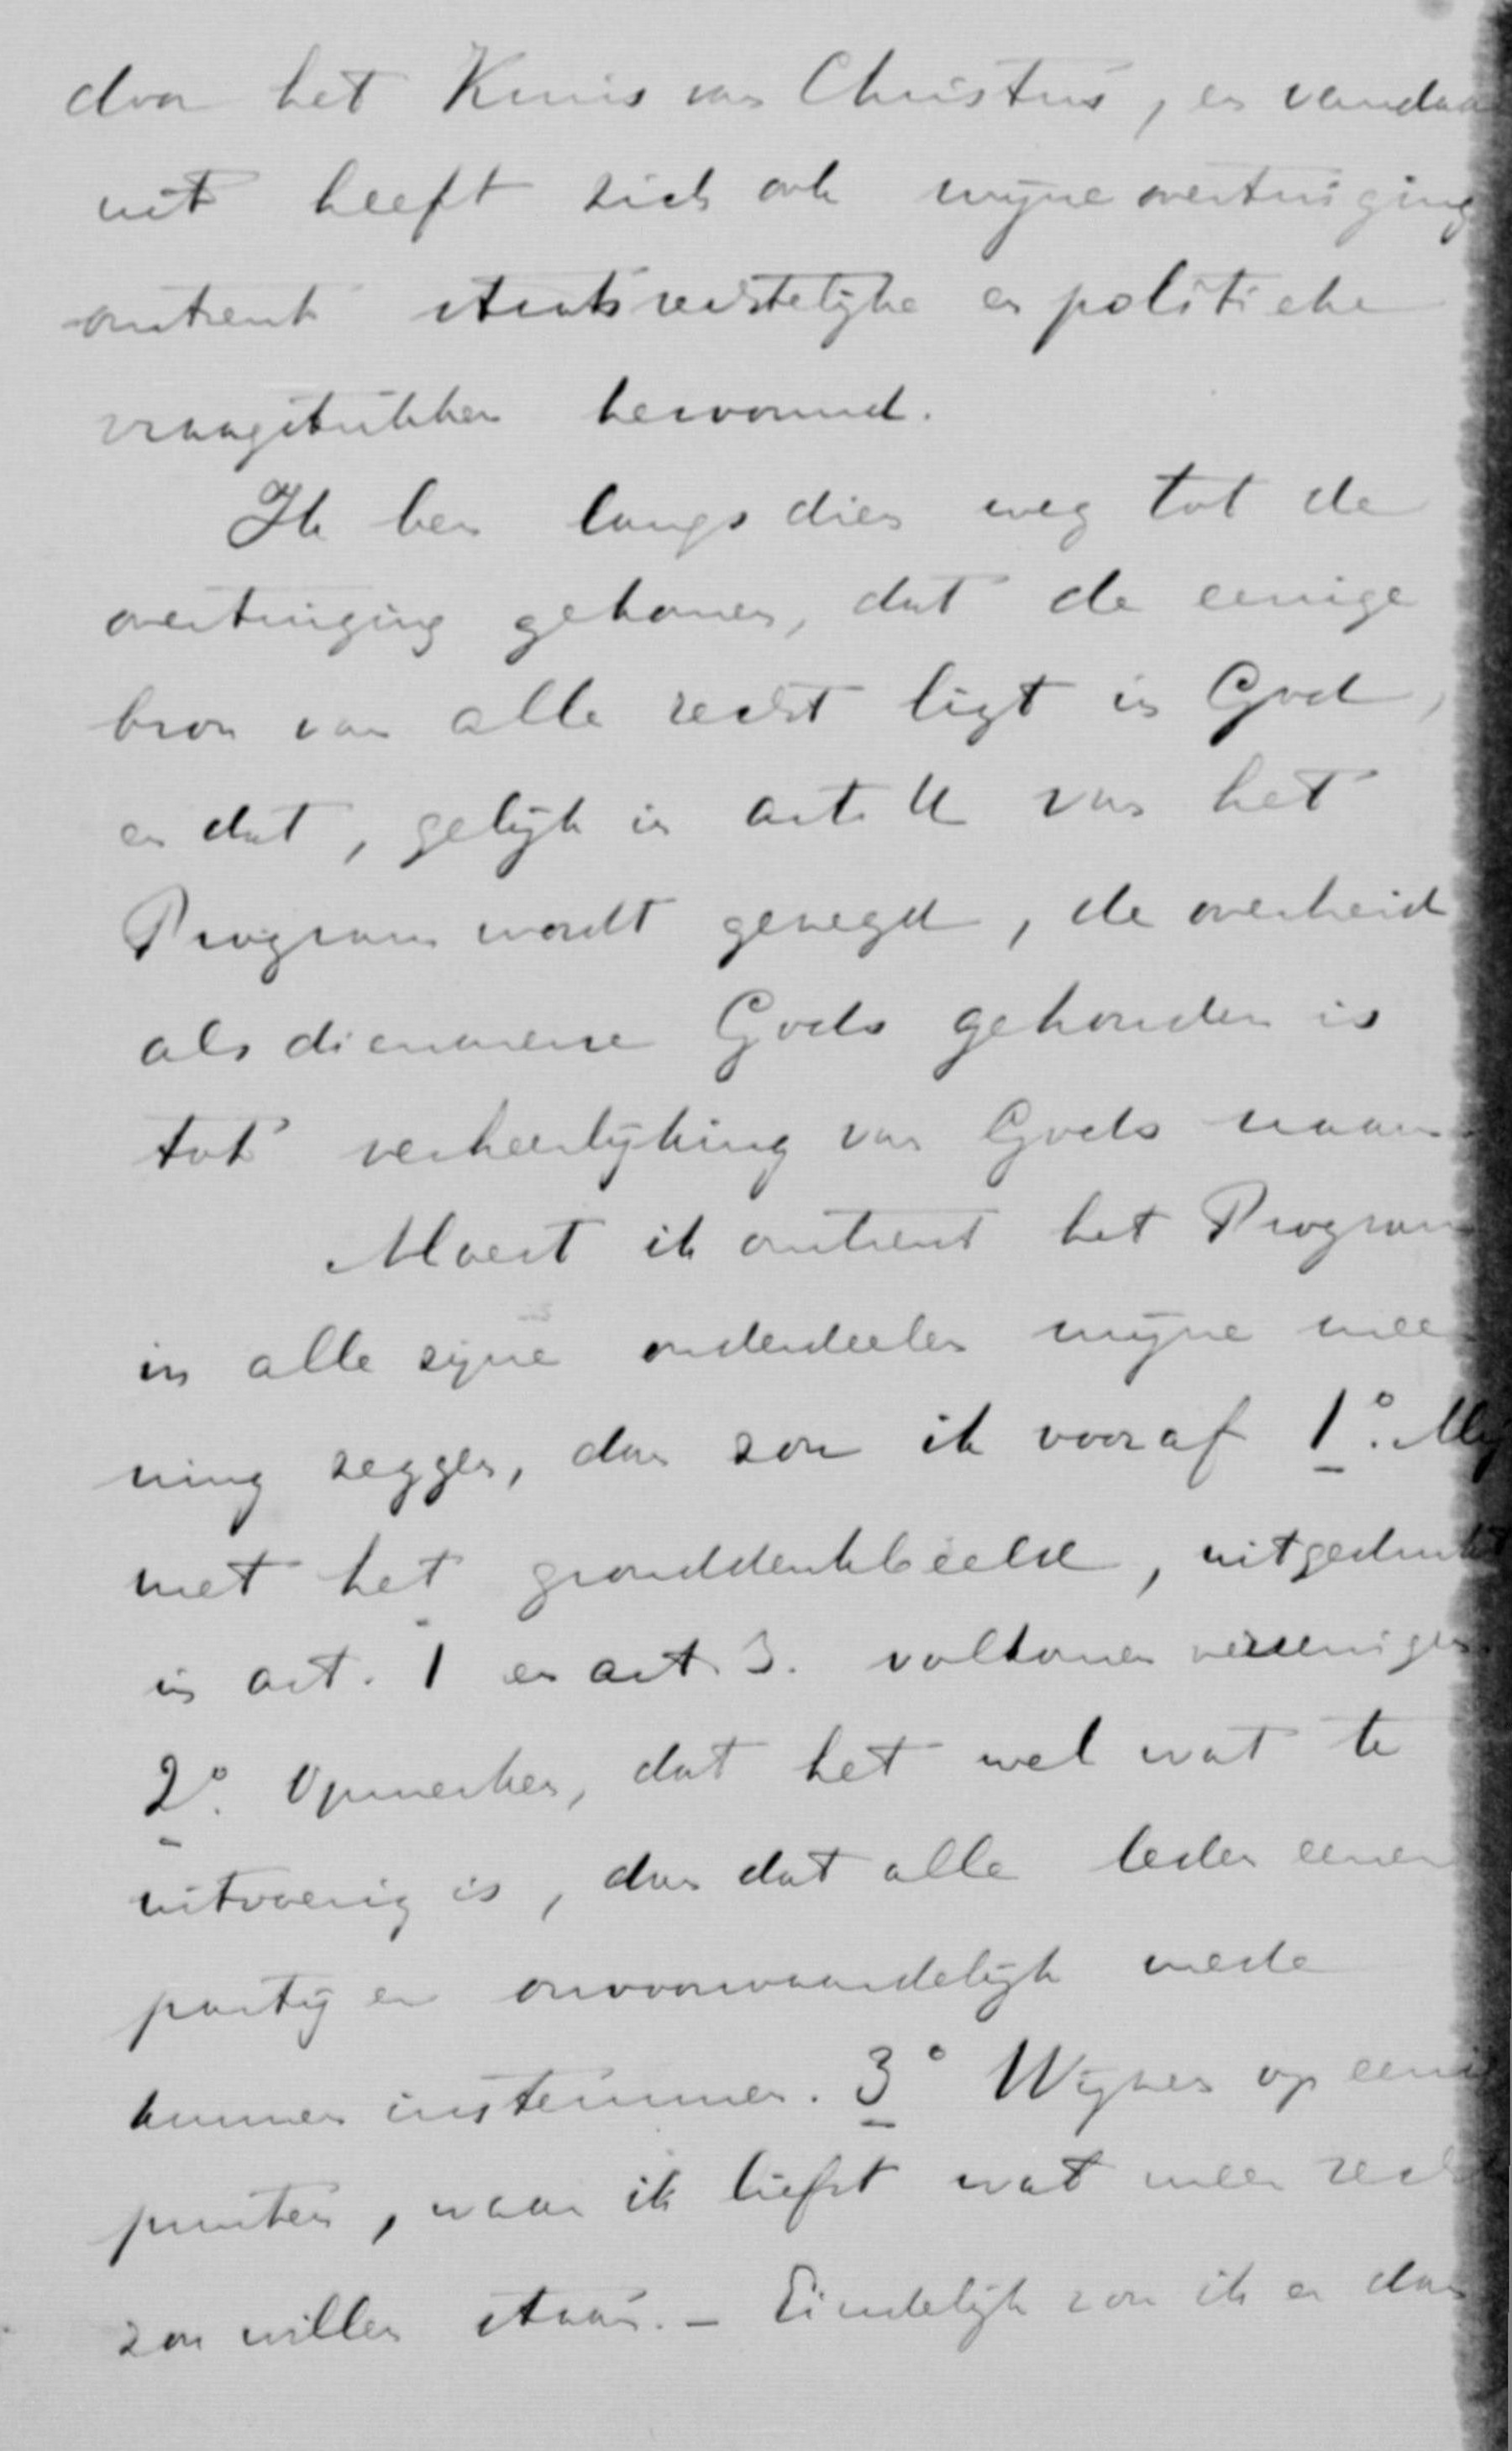 door het Kruis van Christus, en vandaar
uit heeft zich ook mijne overtuiging
omtrent staatsrechtelijke en politieke
vraagstukken hervormd.
Ik ben langs dien weg tot de
overtuiging gekomen, dat de eenige
bron van alle recht ligt in God,
en dat, gelijk in art. 4 van het
Program wordt gezegd, de overheid
als dienaresse Gods gehouden is
tot verheerlijking van Gods naam.
Moest ik omtrent het Program
in alle zijne onderdeelen mijne mee
ning zeggen, dan zou ik vooraf 1°. Mij
met het gronddenkbeeld, uitgedrukt
in art. 1 en art. 3. volkomen vereenigen
2°. Opmerken, dat het wel wat te
uitvoerig is, dan dat alle leden eener
partij er onvoorwaardelijk mede
kunnen instemmen. 3° Wijzen op eenige
punten, waar ik liefst wat meer rechts
zou willen staan. - Eindelijk zou ik er dan